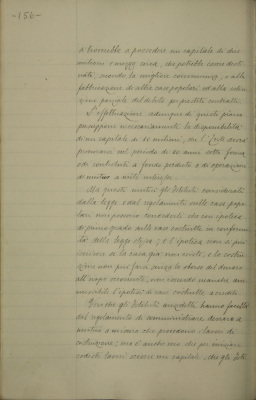 -156-
a troverebbe a possedere un capitale di due
milioni e mezzo circa, che potrebbe essere desti
nato, secondo la migliore convenienza, o alla
fabbricazione di altre case popolari od alla estin
zione parziale del debito per prestiti contratti.
L'effettuazione adunque di questo piano
presuppone necessariamente la disponibilità
di un capitale di 10 milioni, che l'Ente dovrà
procurarsi nel periodo di 10 anni sotto forma
o di contributi a fondo perduto o di operazioni
di mutuo a mite interesse.
Ma questi mutui gli Istituti considerati
dalla legge e dal regolamento sulle case popo
lari non possono concederli che con ipoteca
di primo grado sulle case costruite in conformi
tà della legge stessa; e l'ipoteca non si può
iscrivere se la casa già non esiste, e la costru
zione non può farsi, senza lo sborso del denaro
all'uopo occorrente, non essendo neanche am
missibile l'ipoteca di case costruite a credito.
Perciò gli Istituti anzidetti hanno facoltà
dal regolamento di somministrare denaro a
mutuo a misura che procedono i lavori di
costruzione; ma è anche vero che per iniziare
codesti lavori occorre un capitale. Ma gli Isti